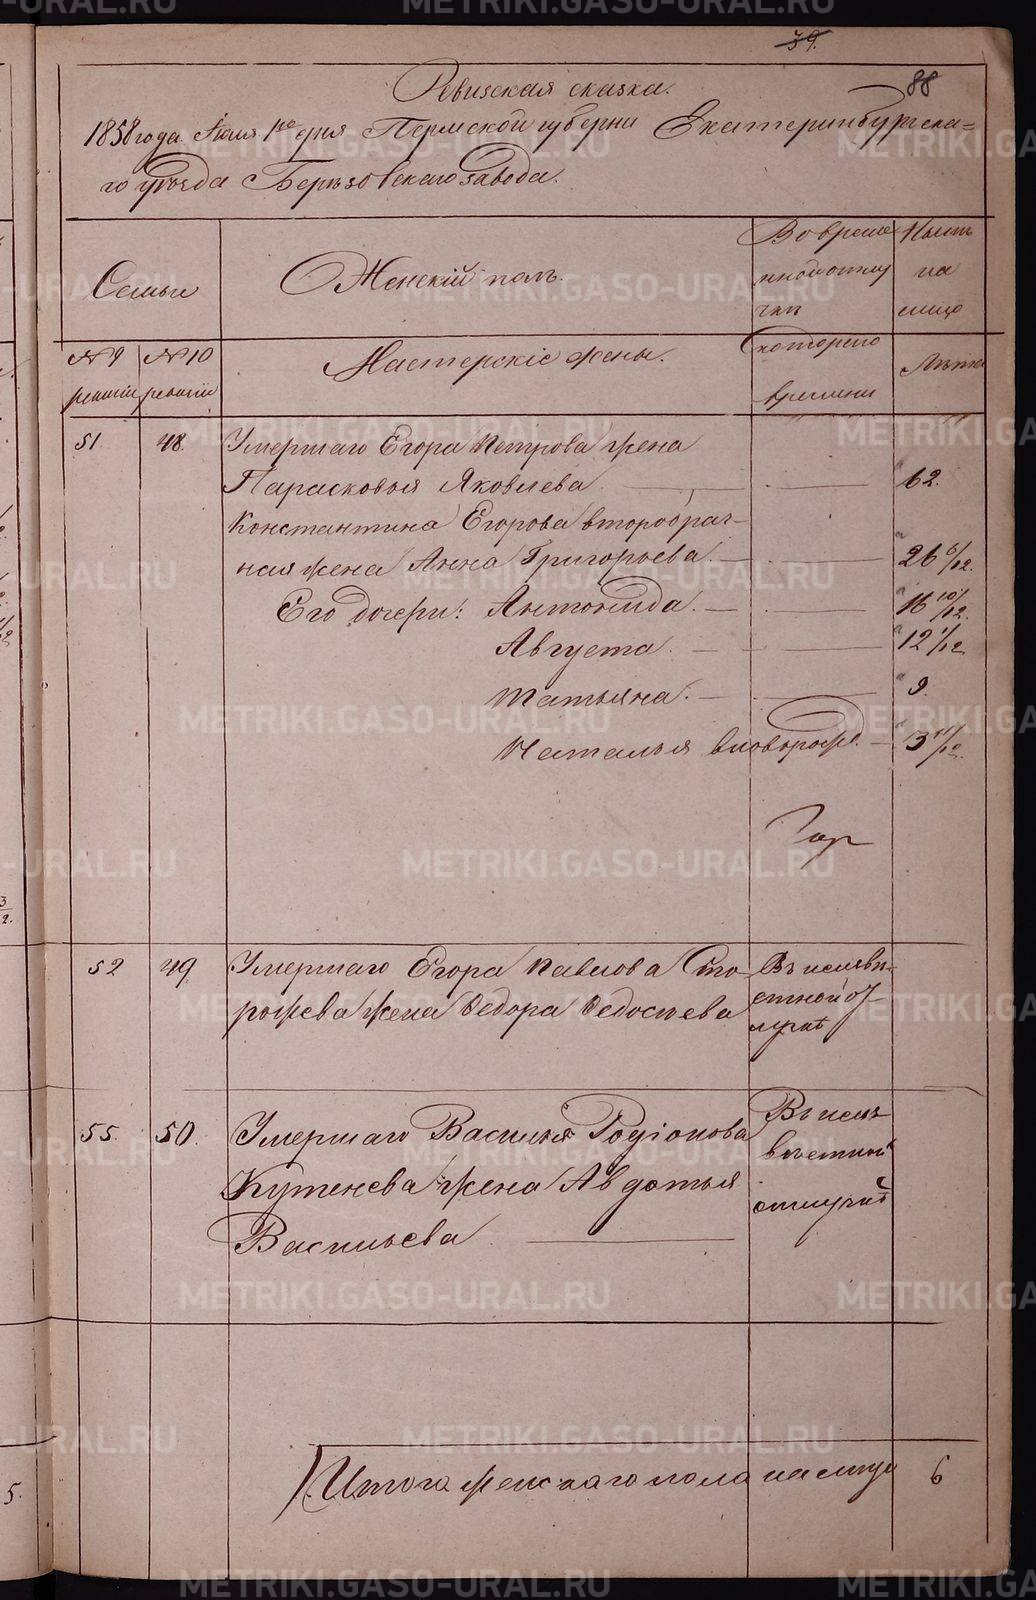 39.
88
Ревизская сказка.
1858 года Июля 1го дня Пермской губерни Екатеринбургска-
го уѣзда Березовскаго завода.
Семьи
Женскій полъ.
Во време
нной отлу
чкѣ
Нынѣ
на
лицо
№ 9
ревизіи
№ 10
ревизіи
Мастерскіе жены.
съ котораго
времени
Лѣта
51.
48.
Умершаго Егора Петрова жена
Парасковья Яковлева
62.
Константина Егорова второбрач-
ная жена Анна Григорьева.
26 6/12.
Его дочери: Антонида.
16 10/12.
Августа.
12 1/12
Татьяна.
9.
Наталья вновьрожд.
3 11/12.
52
49
Умершаго Егора Павлова Сто-
рожева жена Федора Федосѣева
Въ неизвѣ-
стной от-
лучкѣ
55.
50.
Умершаго Василья Родіонова
Кутенева жена Авдотья
Васильева
Въ неиз
вѣстной
отлучкѣ
Итого женскаго пола на лицо
6
5.
METRIKI.GASO-URAL.RU